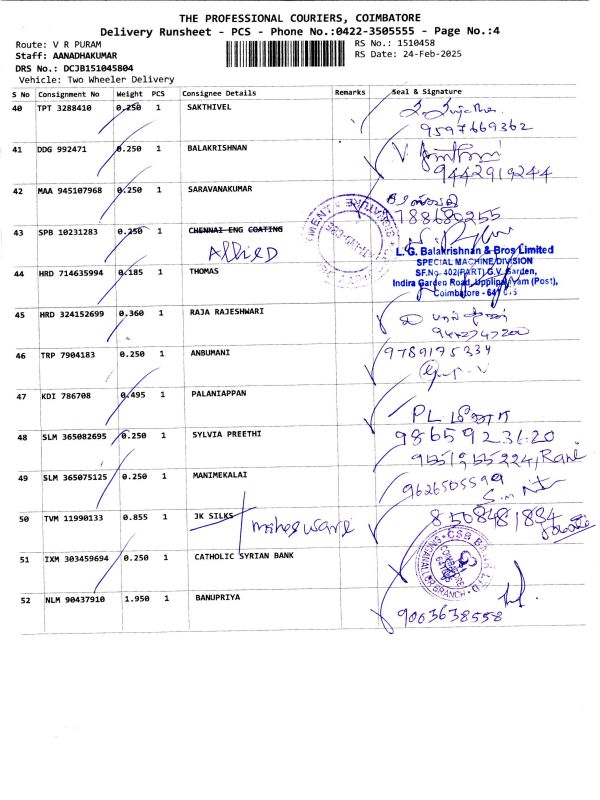 THE PROFESSIONAL COURIERS, COIMBATORE
Delivery Runsheet - PCS - Phone No.:0422-3505555 - Page No.:4
Route: V R PURAM
RS No.: 1510458
Staff: AANADHAKUMAR
RS Date: 24-Feb-2025
DRS No.: DCJB151045804
Vehicle: Two Wheeler Delivery
S No Consignment No Weight PCS Consignee Details Remarks Seal & Signature
40 TPT 3288410 0.250 1 SAKTHIVEL
9597669362
41 DDG 992471 0.250 1 BALAKRISHNAN
9442919244
42 MAA 945107968 0.250 1 SARAVANAKUMAR
43 SPB 10231283 0.250 1 CHENNAI ENG COATING
Allied
L.G. Balakrishnan & Bros Limited
SPECIAL MACHINE DIVISION
SF.No. 402(PART) G.V. Garden,
Indira Garden Road, Uppilipalayam (Post),
Coimbatore - 641 015
44 HRD 714635994 0.185 1 THOMAS
45 HRD 324152699 0.360 1 RAJA RAJESHWARI
46 TRP 7904183 0.250 1 ANBUMANI
9789175334
47 KDI 786708 0.495 1 PALANIAPPAN
PL மீனா
48 SLM 365082695 0.250 1 SYLVIA PREETHI
9865923620
49 SLM 365075125 0.250 1 MANIMEKALAI
9551955224, Rani
9626505599
50 TVM 11990133 0.855 1 JK SILKS
maheswari
8508481884
51 IXM 303459694 0.250 1 CATHOLIC SYRIAN BANK
CSB BANK LTD
BRANCH
52 NLM 90437910 1.950 1 BANUPRIYA
9003638558